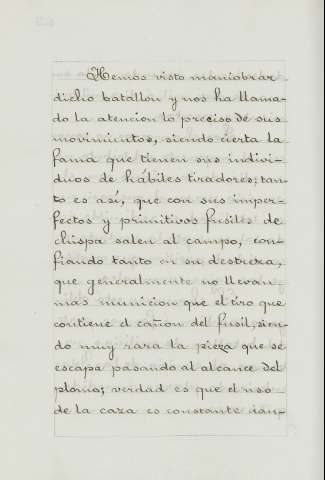 Hemos visto maniobrar
dicho batallon y nos ha llama-
do la atencion lo preciso de sus
movimientos, siendo cierta la
fama que tienen sus indivi-
duos de hábiles tiradores; tan-
to es así, que con sus imper-
fectos y primitivos fusiles de
chispa salen al campo, con-
fiando tanto en su destreza,
que generalmente no llevan
mas municion que el tiro que
contiene el cañon del fusil, sien-
do muy rara la pieza que se
escapa pasando al alcance del
plomo; verdad es que el uso
de la caza es constante